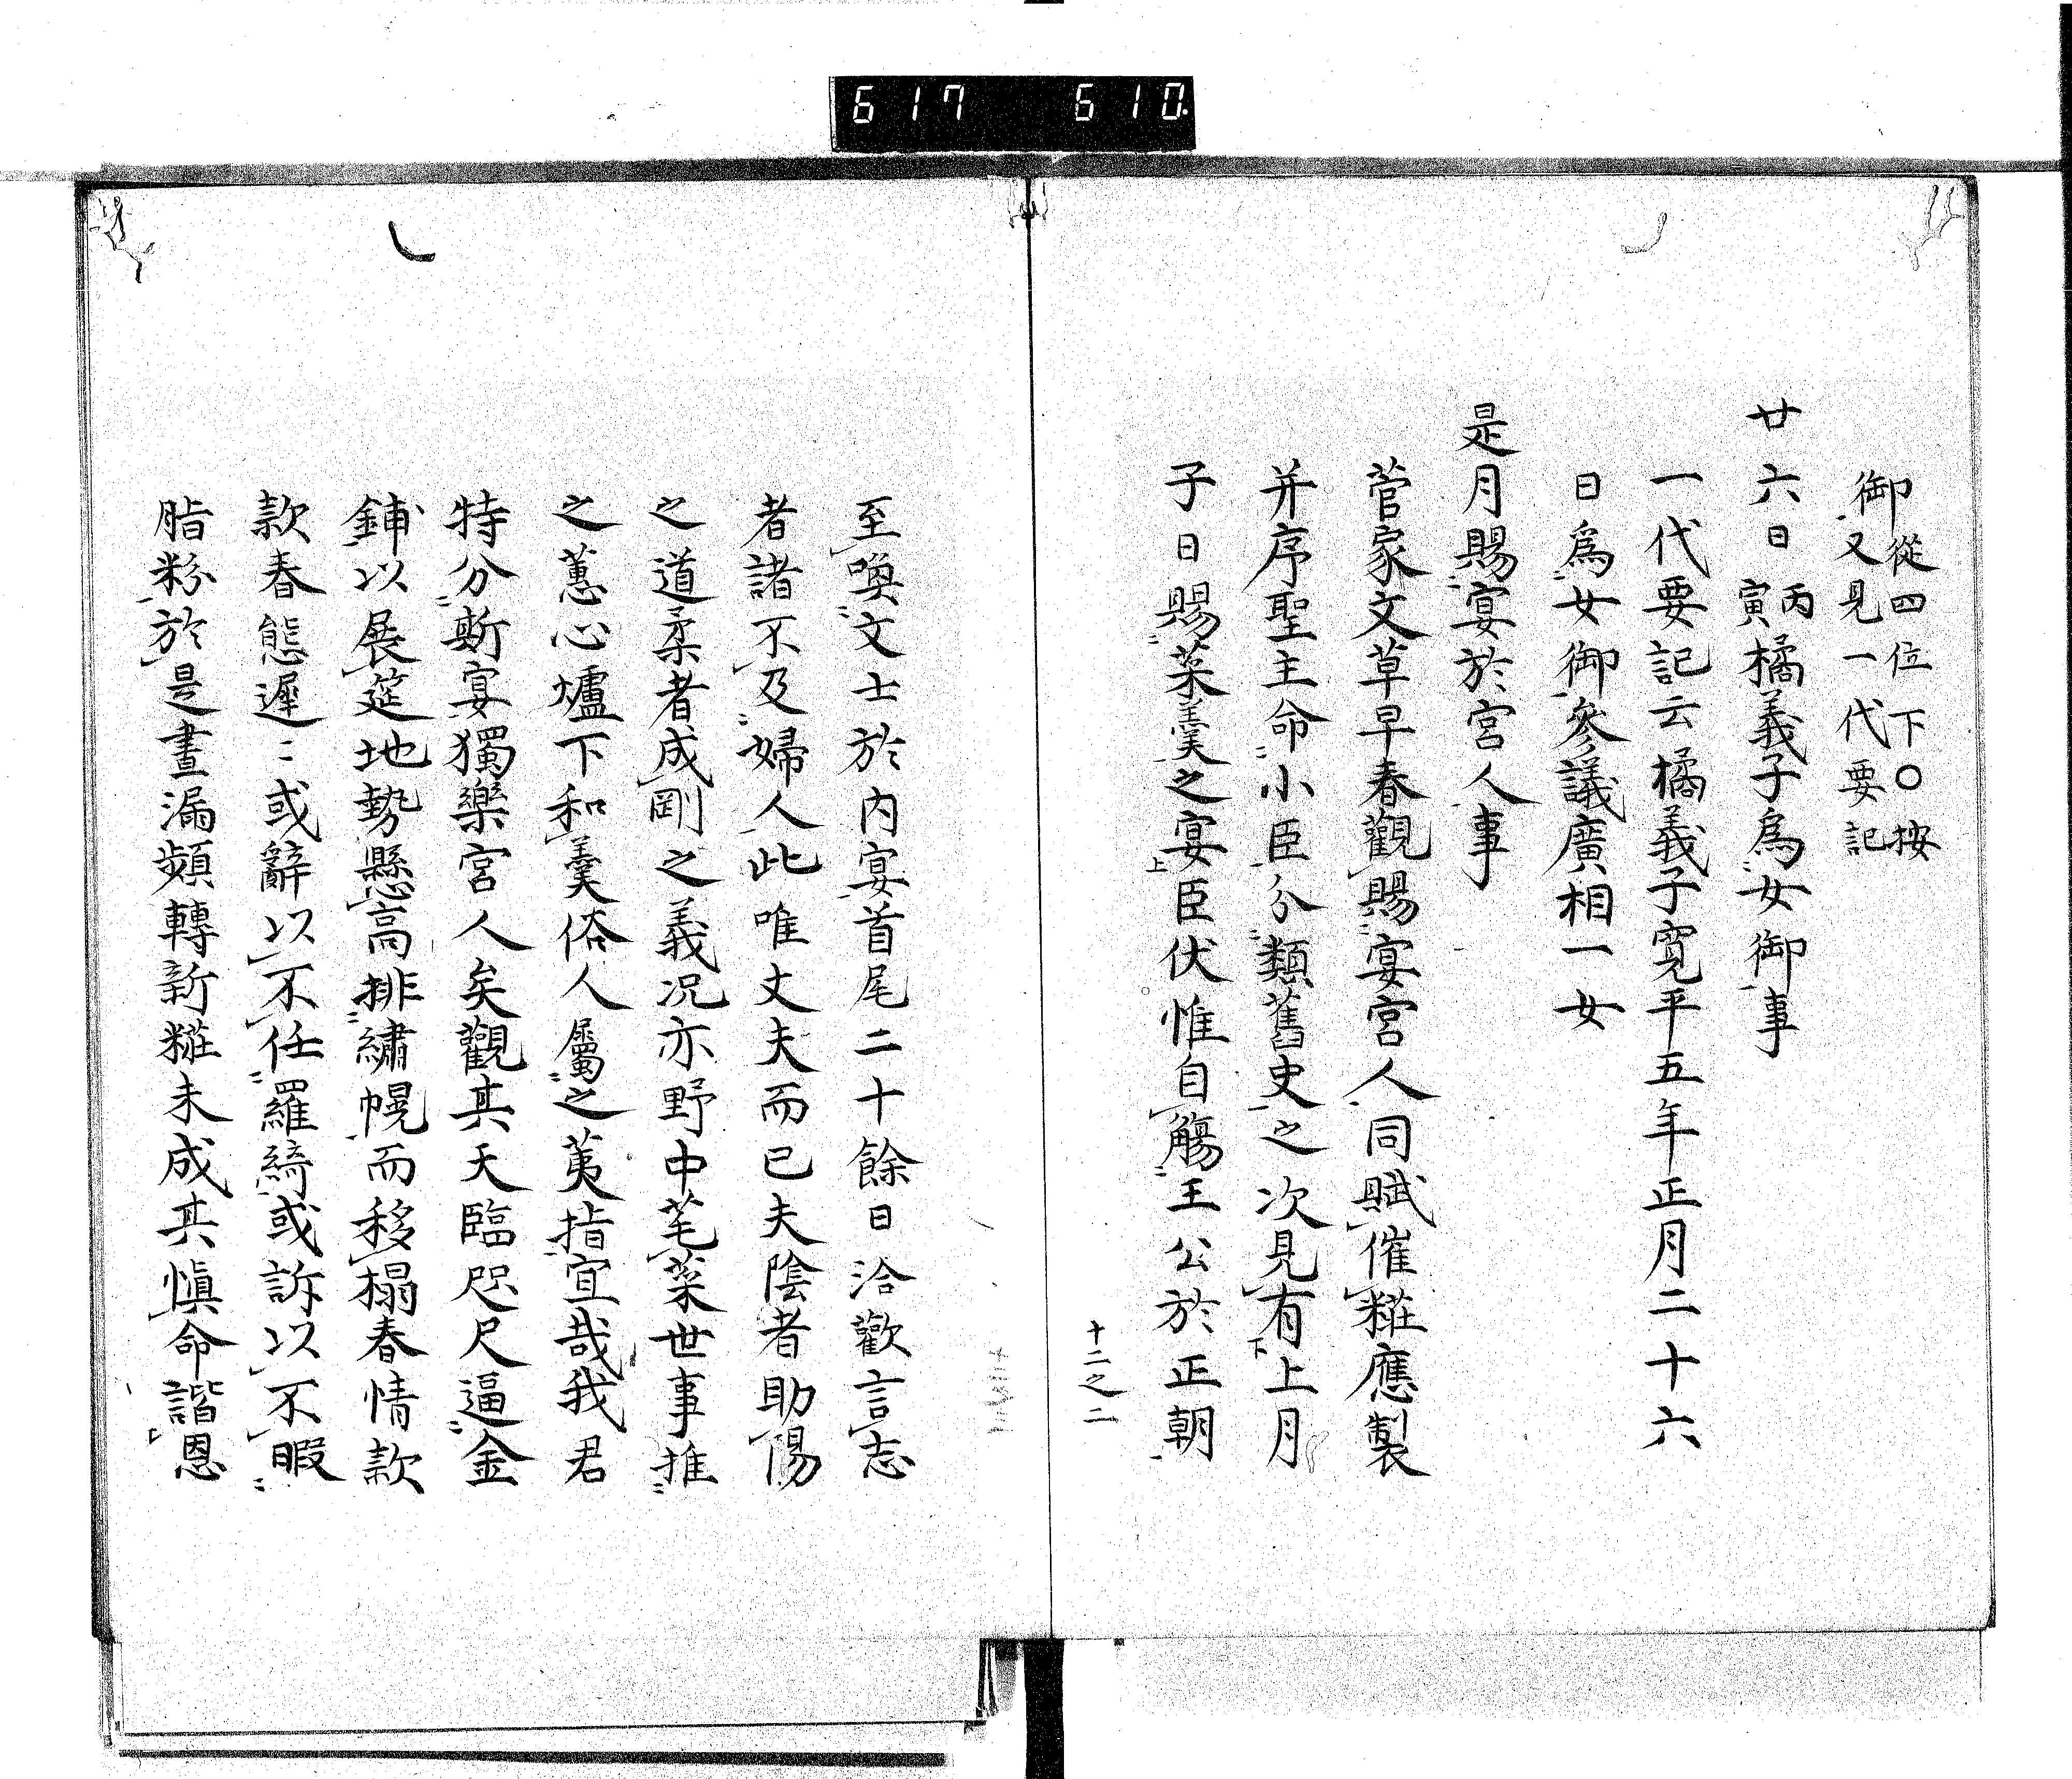 617 610
御從四位下〇按
又見一代要記
廿六日丙寅橘義子爲女御事
一代要記云橘義子寛平五年正月二十六
日爲女御參議廣相一女
是月賜宴於宮人事
菅家文草早春觀賜宴宮人同賦催粧應製
并序聖主命小臣分類舊史之次見有上月
子日賜菜羹之宴臣伏惟自觴王公於正朝
十二之二
至喚文士於内宴首尾二十餘日洽歡言志
者諸不及婦人此唯丈夫而已夫陰者助陽
之道柔者成剛之義况亦野中芼菜世事推
之蕙心爐下和羹俗人屬之荑指宜哉我君
特分斯宴獨樂宮人矣觀其天臨咫尺逼金
鋪以展筵地勢懸高排繡幌而移榻春情款
款春態遲〻或辭以不任羅綺或訴以不暇
脂粉於是晝漏頻轉新粧未成其愼命諧恩